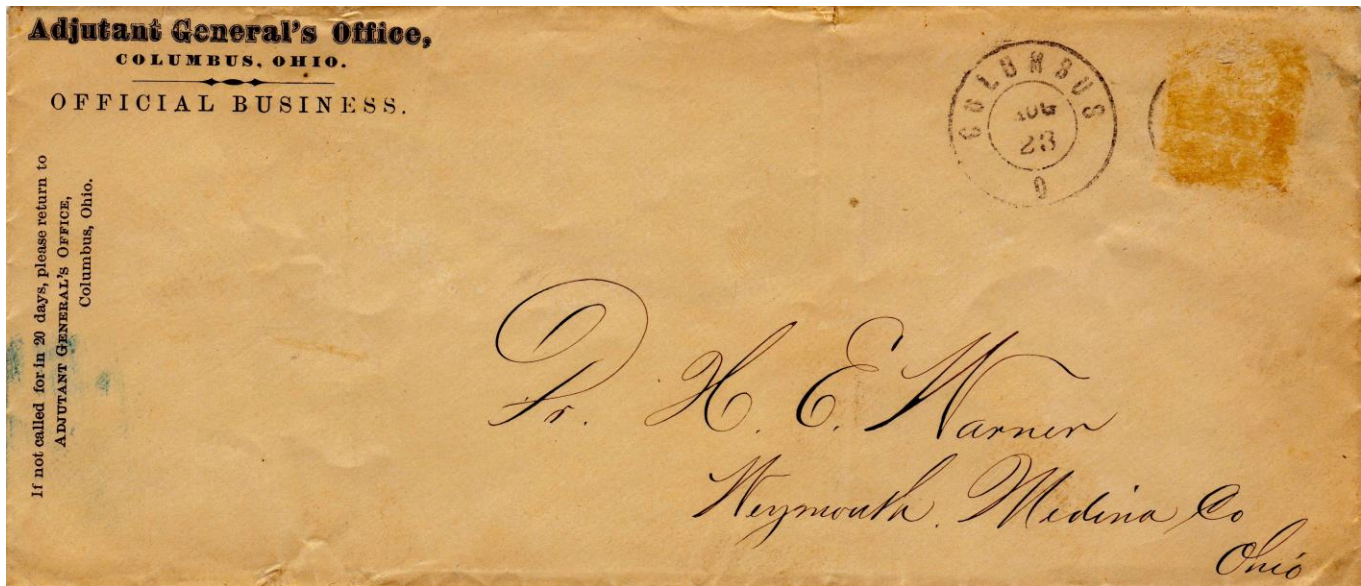 Adjutant General's Office,
COLUMBUS, OHIO.
OFFICIAL BUSINESS.
If not called for in 20 days, please return to
ADJUTANT GENERAL'S OFFICE,
Columbus, Ohio.
COLUMBUS
AUG
23
O
Dr. H. E. Warner
Weymouth, Medina Co
Ohio